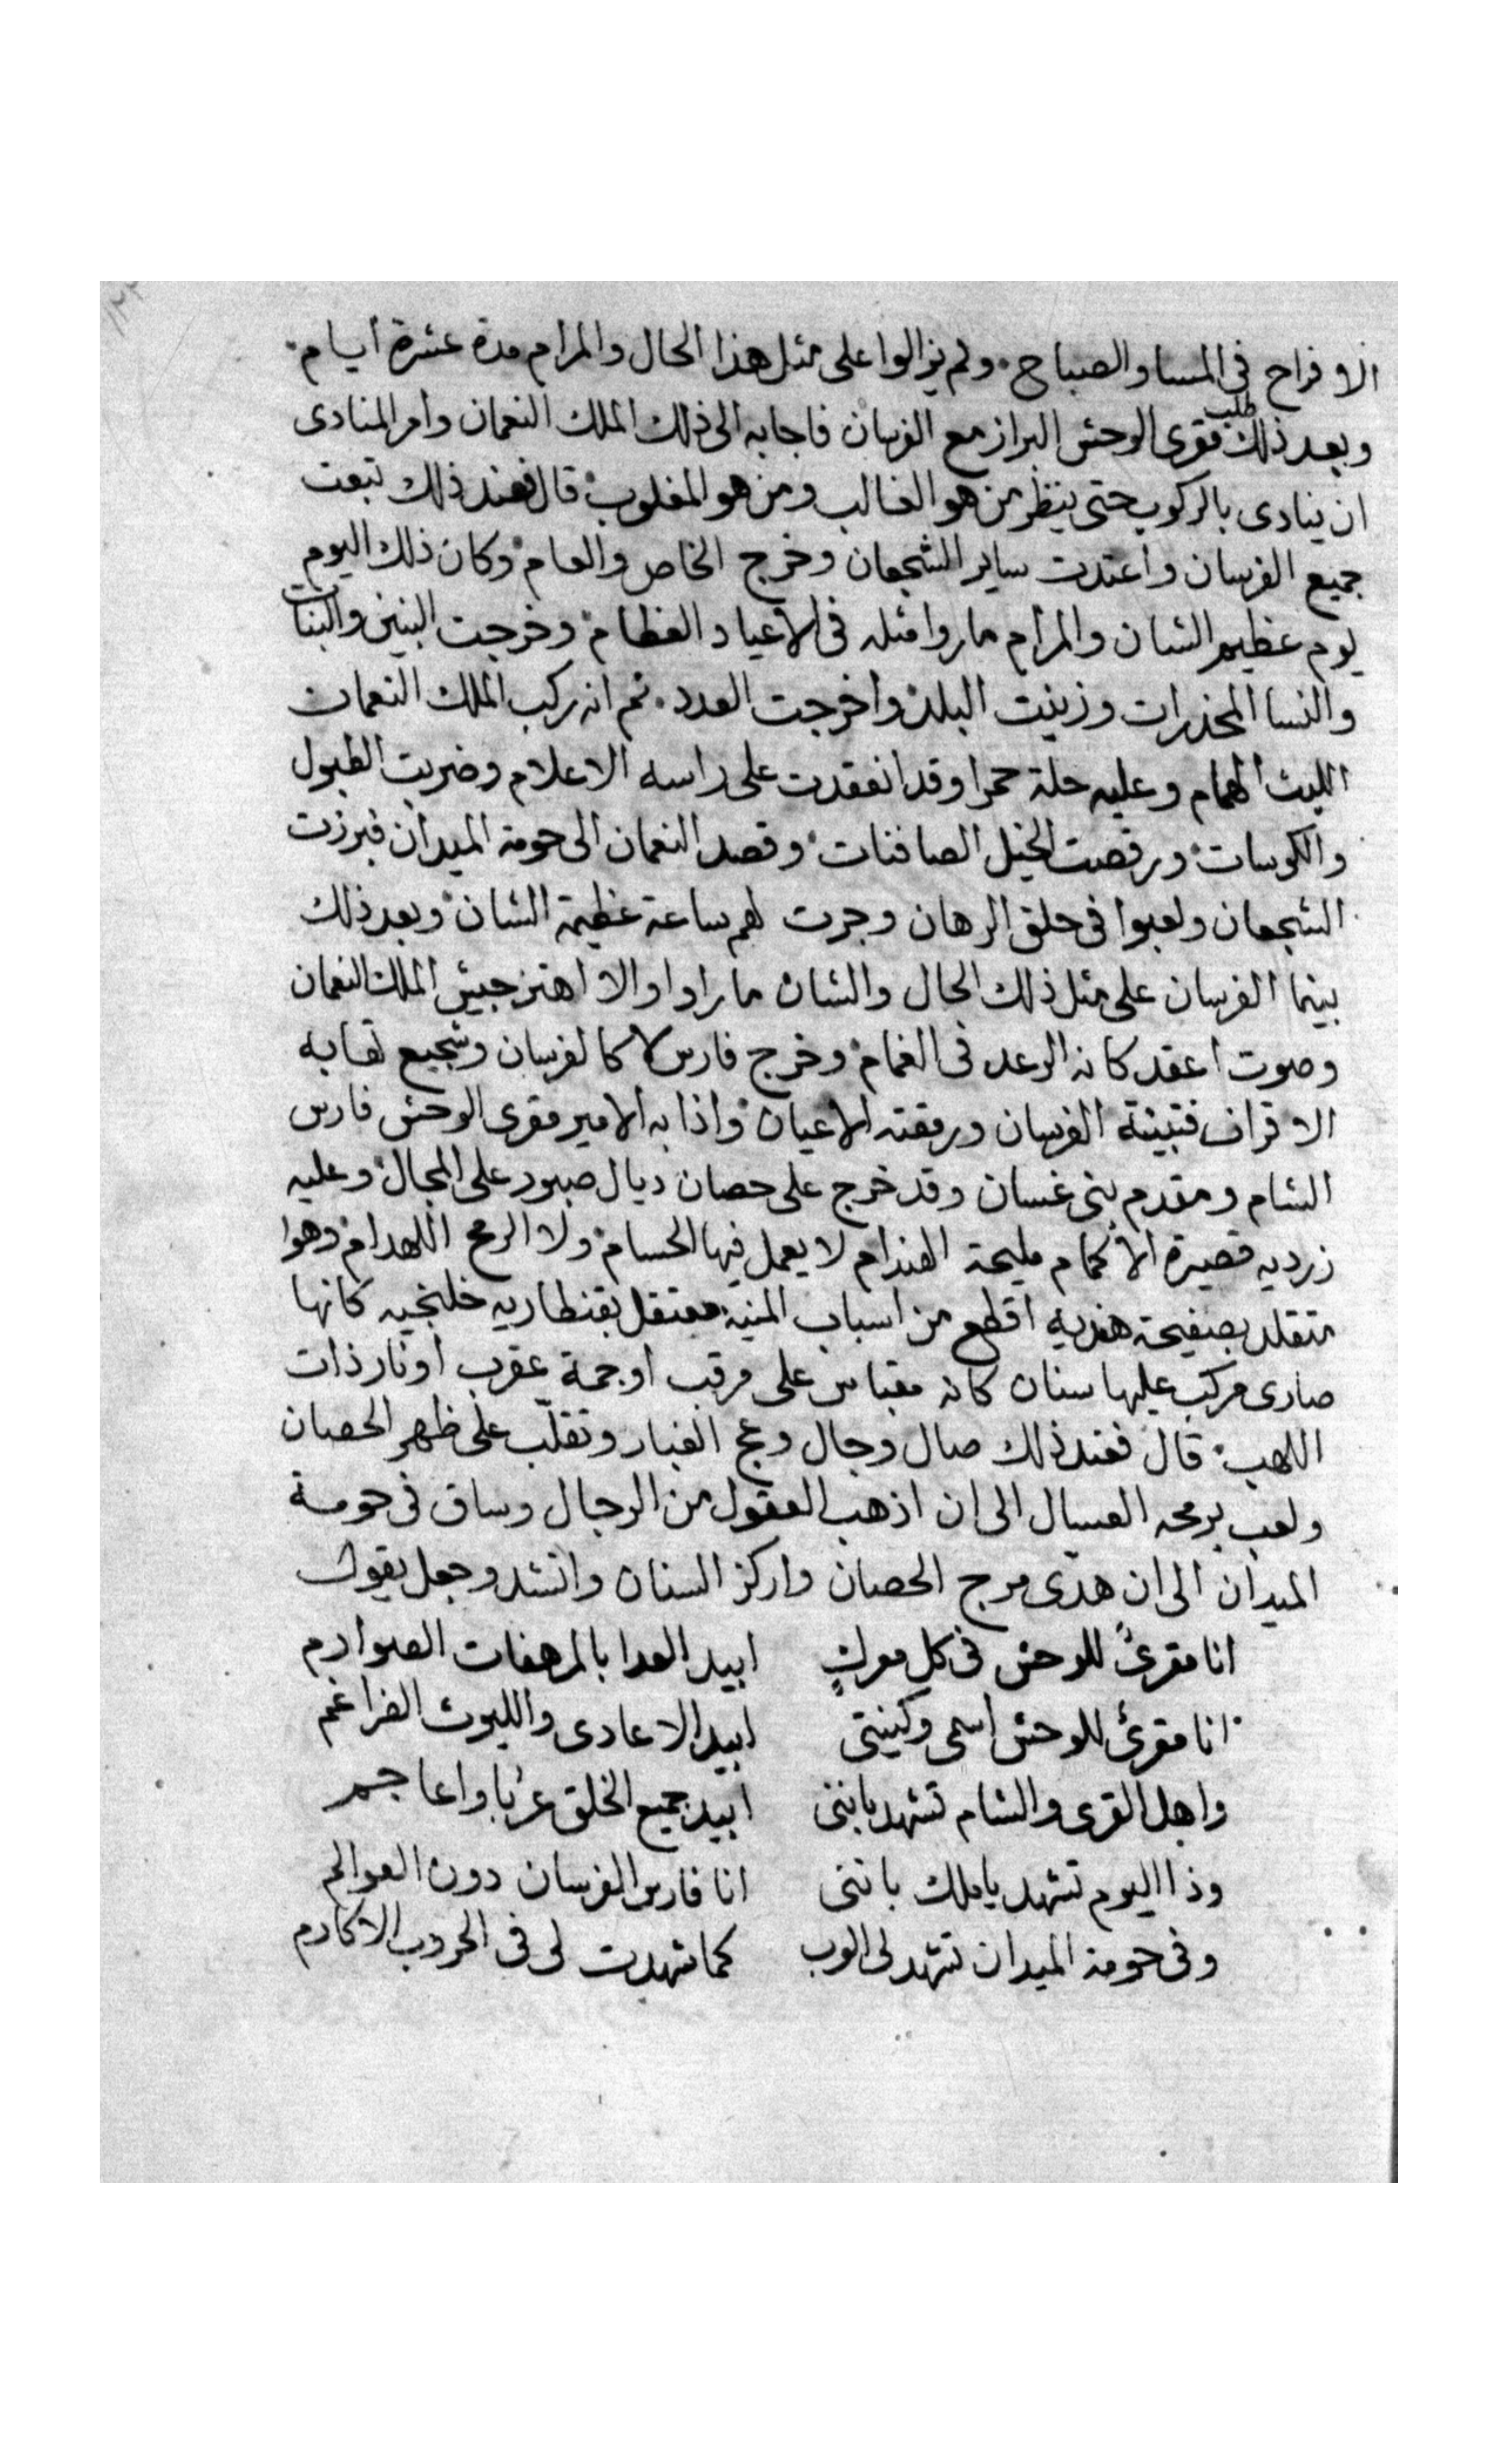 الافراح فى المسا والصباح ولم يزالوا على مثل هذا الحال والمرام مدة عشرة ايام
وبعد ذلك طلب مقرى الوحش البراز مع الفرسان فاجابه الى ذلك الملك النعمان وامر المنادى
ان ينادى بالركوب حتى ينظر من هو الغالب ومن هو المغلوب قال فعند ذلك تبعت
جميع الفرسان واعتدت ساير الشجعان وخرج الخاص والعام وكان ذلك اليوم
يوم عظيم الشان والمرام ماروا مثله فى الاعياد العظام وخرجت البنين والبنات
والنسا المخدرات وزينت البلد واخرجت العدد ثم انه ركب الملك النعمان
الليث الهمام وعليه حلة حمرا وقد انعقدت على راسه الاعلام وضربت الطبول
والكوسات ورقصت الخيل الصافنات وقصد النعمان الى حومة الميدان فبرزت
الشجعان ولعبوا فى حلق الرهان وجرت لهم ساعة عظيمة الشان وبعد ذلك
بينما الفرسان على مثل ذلك الحال والشان ماراوا والا اهتز جيش الملك النعمان
وصوت اعقد كانه الرعد فى الغمام وخرج فارس لا كالفرسان وشجيع تهابه
الاقران فتبينة الفرسان ورمقته الاعيان واذا به الامير مقرى الوحش فارس
الشام ومقدم بنى غسان وقد خرج على حصان ديال صبور على المجال وعليه
زرديه قصيرة الاكمام مليحة الهندام لا يعمل فيها الحسام ولا الرمح اللهدام وهوا
متقلد بصفيحة هنديه اقطع من اسباب المنيه معتقل بقنطاريه خلنجيه كانها
صارى مركب عليها سنان كانه مقباس على مرقب او حمة عقرب او نار ذات
اللهب قال فعند ذلك صال وجال وعج الغبار وتقلب على ظهر الحصان
ولعب برمحه العسال الى ان اذهب العقول من الرجال وساق فى حومة
الميدان الى ان هدى مرج الحصان واركز السنان وانشد وجعل يقول
انا مقرئ للوحش فى كل معرك ابيد العدا بالمرهفات الصوارم
انا مقرئ للوحش اسمى وكنيتى ابيد الاعادى والليوث الضراغم
واهل القرى والشام تشهد باننى ابيد جميع الخلق عربا واعاجم
وذا اليوم تشهد يا ملك باننى انا فارس الفرسان دون العوالم
وفى حومة الميدان تشهد لى كما شهدت لى فى الحروب الاكارم